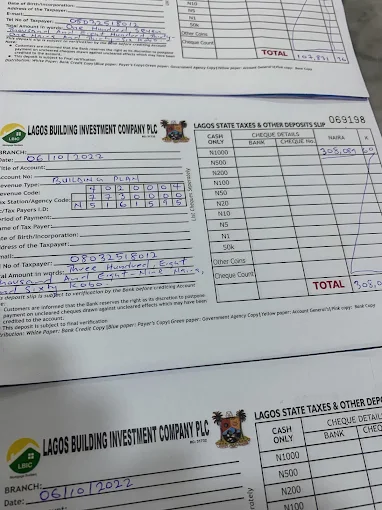 Date of Birth/Incorporation:
Address of the Taxpayer:
E-mail:
Tel No of Taxpayer: 08032518012
Total Amount in words: One Hundred Seven
Thousand And Eight Hundred Thirty
deposit slip is subject to verification by the Bank before crediting Account
Customers are informed that the Bank reserves the right as its discretion to postpone
payment on uncleared cheques drawn against uncleared effects which may have been
credited to the account.
This deposit is subject to final verification
N10
N5
N1
50k
Other Coins
Cheque Count
TOTAL 107,831
LAGOS BUILDING INVESTMENT COMPANY PLC
LBIC
LAGOS STATE TAXES & OTHER DEPOSITS SLIP 069198
BRANCH:
Date: 06/10/2022
Title of Account:
Account No: BUILDING PLAN
Revenue Type: 4020007
Revenue Code: 7730000
Tax Station/Agency Code: N5161595
Tax Payers I.D:
Period of Payment:
Name of Tax Payer:
Date of Birth/Incorporation:
Address of the Taxpayer:
mail:
No of Taxpayer: 08032518012
al Amount in words: Three Hundred Eight
Thousand And Eight-Nine Naira,
And Sixty Kobo.
deposit slip is subject to verification by the Bank before crediting Account
Customers are informed that the Bank reserves the right as its discretion to postpone
payment on uncleared cheques drawn against uncleared effects which may have been
credited to the account.
This deposit is subject to final verification
tribution: White Paper: Bank Credit Copy (Blue paper: Payer's Copy) Green paper: Government Agency Copy) Yellow paper: Account General's) Pink copy: Bank Copy
List Cheques Separately
CASH ONLY
CHEQUE DETAILS
BANK
CHEQUE No.
NAIRA
K
N1000 308,089 60
N500
N200
N100
N50
N20
N10
N5
N1
50k
Other Coins
Cheque Count
TOTAL 308,0
LAGOS BUILDING INVESTMENT COMPANY PLC
LBIC
BRANCH:
Date: 06/10/2022
LAGOS STATE TAXES & OTHER DEPO
CASH ONLY
CHEQUE DETAILS
BANK
CHEQ
N1000
N500
N200
N100